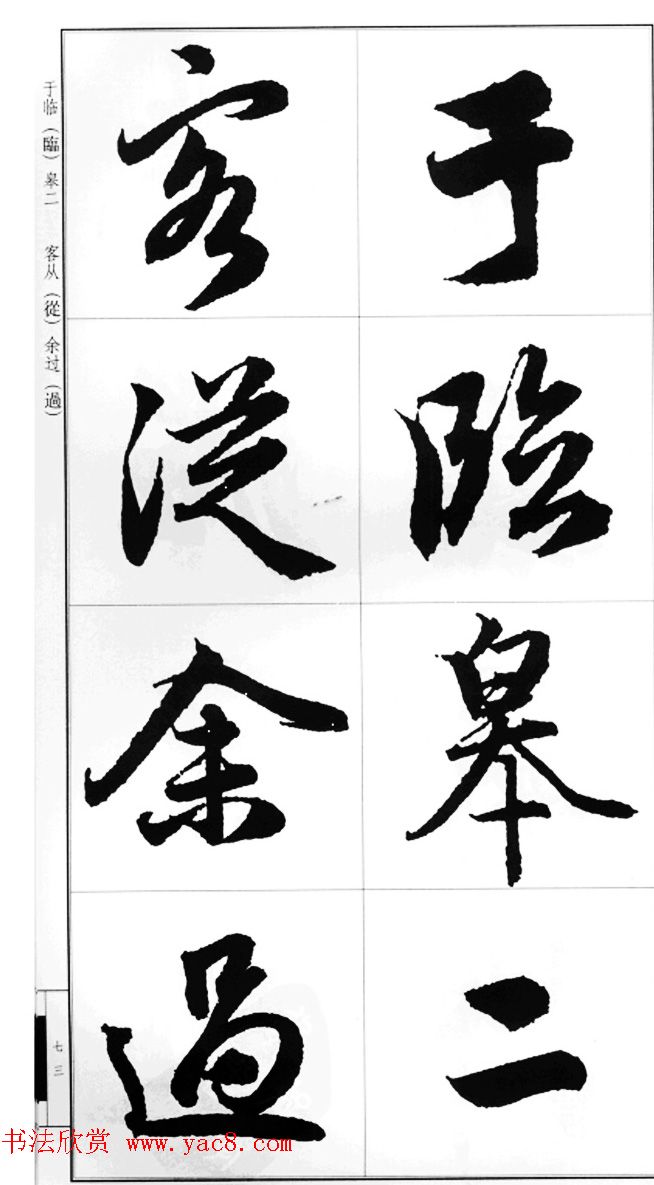 于臨皋二
客從余過
于临（臨）皋二　客从（從）余过（過）
七三
书法欣赏 www.yac8.com